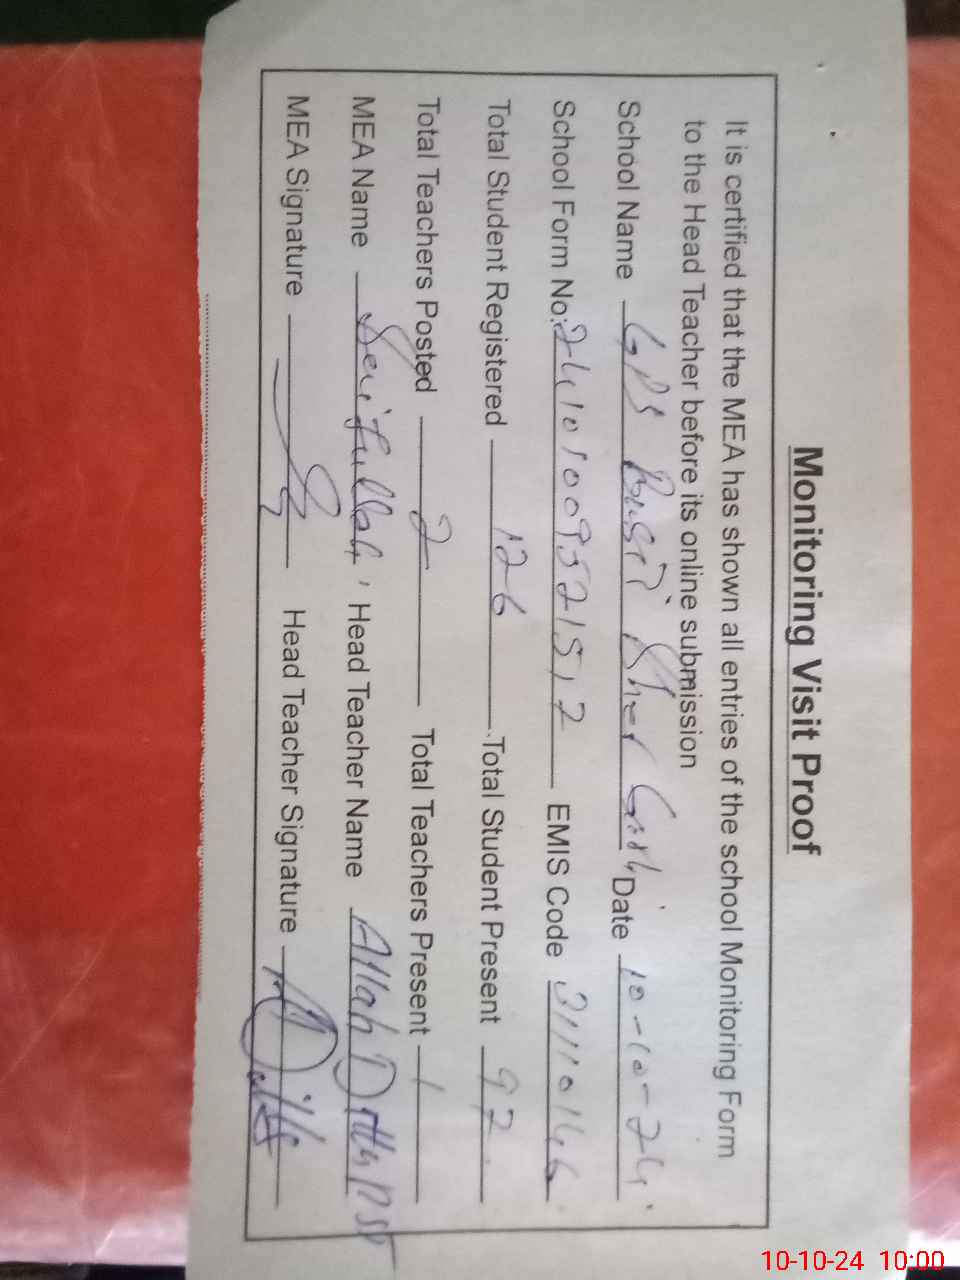 Monitoring Visit Proof
It is certified that the MEA has shown all entries of the school Monitoring Form
to the Head Teacher before its online submission
School Name GPS Basti Sher Garh Date 10-10-24
School Form No: EMIS Code 31110146
Total Student Registered 126 Total Student Present 92
Total Teachers Posted 2 Total Teachers Present 1
MEA Name Head Teacher Name Allah Ditta PST
MEA Signature Head Teacher Signature
10-10-24 10:00